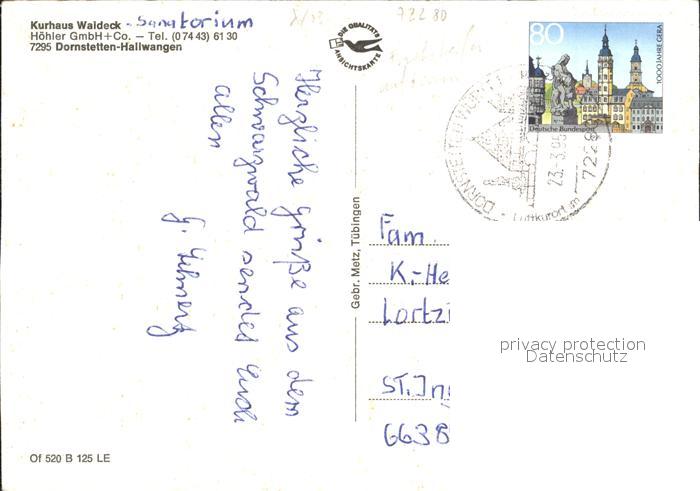 Kurhaus Waldeck - Sanatorium
Höhler GmbH+Co. – Tel. (0 74 43) 61 30
7295 Dornstetten-Hallwangen
DIE QUALITÄTS
ANSICHTSKARTE
722 80
80
1000 JAHRE GERA
Deutsche Bundespost
DORNSTETTEN
23.-3.95
Luftkurort im
Herzliche Grüße aus dem
Schwarzwald sendet Euch
allen
Gebr. Metz, Tübingen
Fam.
K.-He
Lortzi
ST. In
6638
privacy protection
Datenschutz
Of 520 B 125 LE